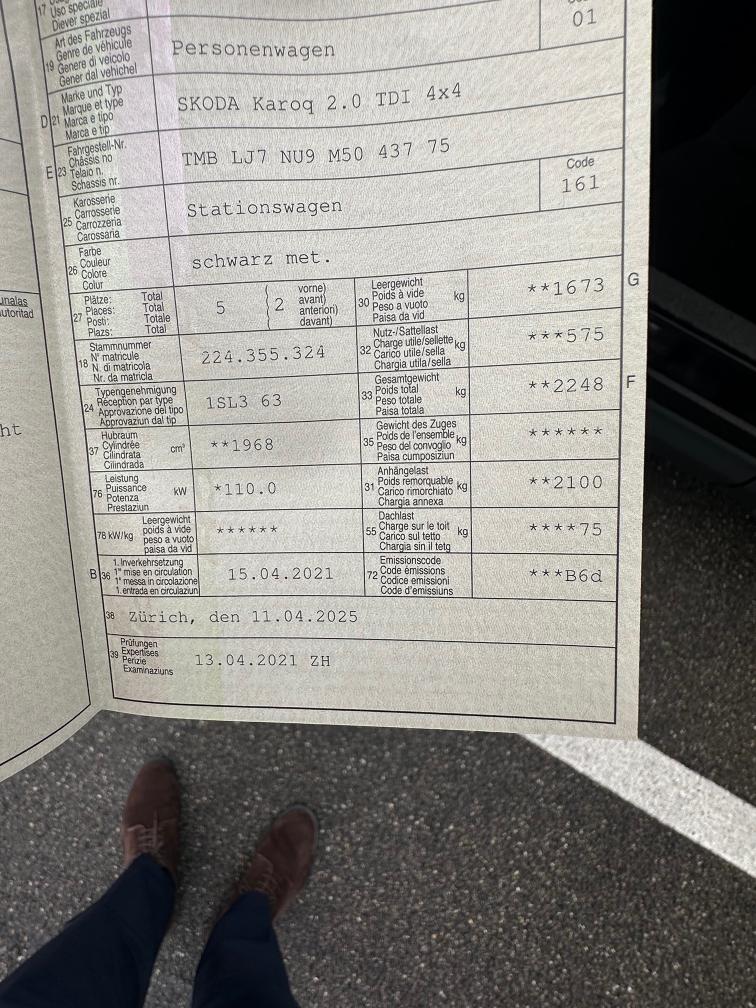 17 Uso speciale
Diever spezial
Art des Fahrzeugs
Genre de véhicule
19 Genere di veicolo
Gener dal vehichel
Personenwagen
01
Marke und Typ
Marque et type
D 21 Marca e tipo
Marca e tip
SKODA Karoq 2.0 TDI 4x4
Fahrgestell-Nr.
Châssis no
E 23 Telaio n.
Schassis nr.
TMB LJ7 NU9 M50 437 75
Karosserie
Carrosserie
25 Carrozzeria
Carossaria
Stationswagen
Code
161
Farbe
26 Couleur
Colore
Colur
schwarz met.
Plätze: Total
Places: Total
27 Posti: Totale
Plazs: Total
5
2
vorne)
avant)
anteriori)
davant)
Leergewicht
30 Poids à vide kg
Peso a vuoto
Paisa da vid
**1673
G
Stammnummer
18 N° matricule
N. di matricola
Nr. da matricla
224.355.324
Nutz-/Sattellast
32 Charge utile/sellette kg
Carico utile/sella
Chargia utila/sella
***575
Typengenehmigung
24 Réception par type
Approvazione del tipo
Approvaziun dal tip
1SL3 63
Gesamtgewicht
33 Poids total kg
Peso totale
Paisa totala
**2248
F
Hubraum
37 Cylindrée cm³
Cilindrata
Cilindrada
**1968
Gewicht des Zuges
35 Poids de l'ensemble kg
Peso del convoglio
Paisa cumposiziun
******
Leistung
76 Puissance kW
Potenza
Prestaziun
*110.0
Anhängelast
31 Poids remorquable kg
Carico rimorchiato
Chargia annexa
**2100
Leergewicht
78 kW/kg poids à vide
peso a vuoto
paisa da vid
******
Dachlast
55 Charge sur le toit kg
Carico sul tetto
Chargia sin il tetg
****75
1. Inverkehrsetzung
B 36 1re mise en circulation
1a messa in circolazione
1. entrada en circulaziun
15.04.2021
Emissionscode
72 Code émissions
Codice emissioni
Code d'emissiuns
***B6d
38 Zürich, den 11.04.2025
Prüfungen
39 Expertises
Perizie
Examinaziuns
13.04.2021 ZH